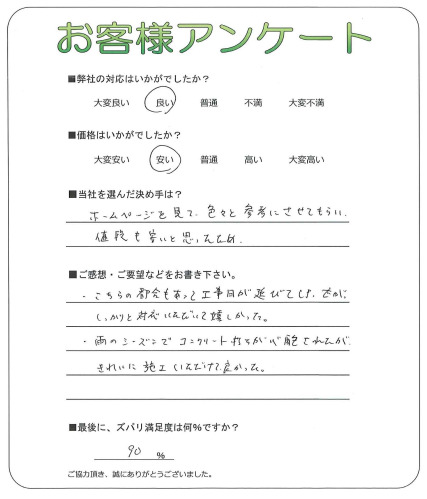 お客様アンケート
■弊社の対応はいかがでしたか?
大変良い 良い 普通 不満 大変不満
■価格はいかがでしたか?
大変安い 安い 普通 高い 大変高い
■当社を選んだ決め手は?
ホームページを見て、色々と参考にさせてもらい、
値段も安いと思ったため
■ご感想・ご要望などをお書き下さい。
・こちらの都合もあって工事日が延びてしまったが、
しっかりと対応いただいて嬉しかった。
・雨のシーズンでコンクリート打ちが心配されたが
きれいに施工いただけて良かった。
■最後に、ズバリ満足度は何%ですか?
90 %
ご協力頂き、誠にありがとうございました。